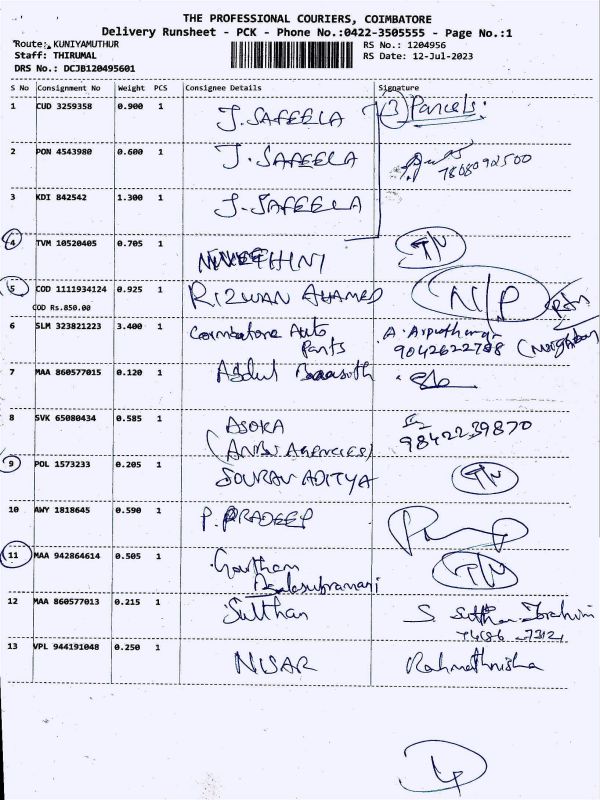 THE PROFESSIONAL COURIERS, COIMBATORE
Delivery Runsheet - PCK - Phone No.:0422-3505555 - Page No.:1
Route: KUNIYAMUTHUR
RS No.: 1204956
Staff: THIRUMAL
RS Date: 12-Jul-2023
DRS No.: DCJB120495601
S No Consignment No Weight PCS Consignee Details Signature
1 CUD 3259358 0.900 1 J. SAFEELA 3 Parcels:
2 PON 4543980 0.600 1 J. SAFEELA 7868092500
3 KDI 842542 1.300 1 J. SAFEELA
4 TVM 10520405 0.705 1 NIVETHINI
5 COD 1111934124 0.925 1 RIZWAN AHAMED N/P
COD Rs.850.00
6 SLM 323821223 3.400 1 Coimbatore Auto
Parts 9042622788
7 MAA 860577015 0.120 1 Abdul
8 SVK 65080434 0.585 1 ASOKA 9842239870
(ANBU AGENCIES)
9 POL 1573233 0.205 1 SOURAV ADITYA
10 AWY 1818645 0.590 1 P. PRADEEP
11 MAA 942864614 0.505 1 Gowtham
Balasubramani
12 MAA 860577013 0.215 1 Sulthan S. Ibrahim
13 VPL 944191048 0.250 1 NISAR Rahmathnisha